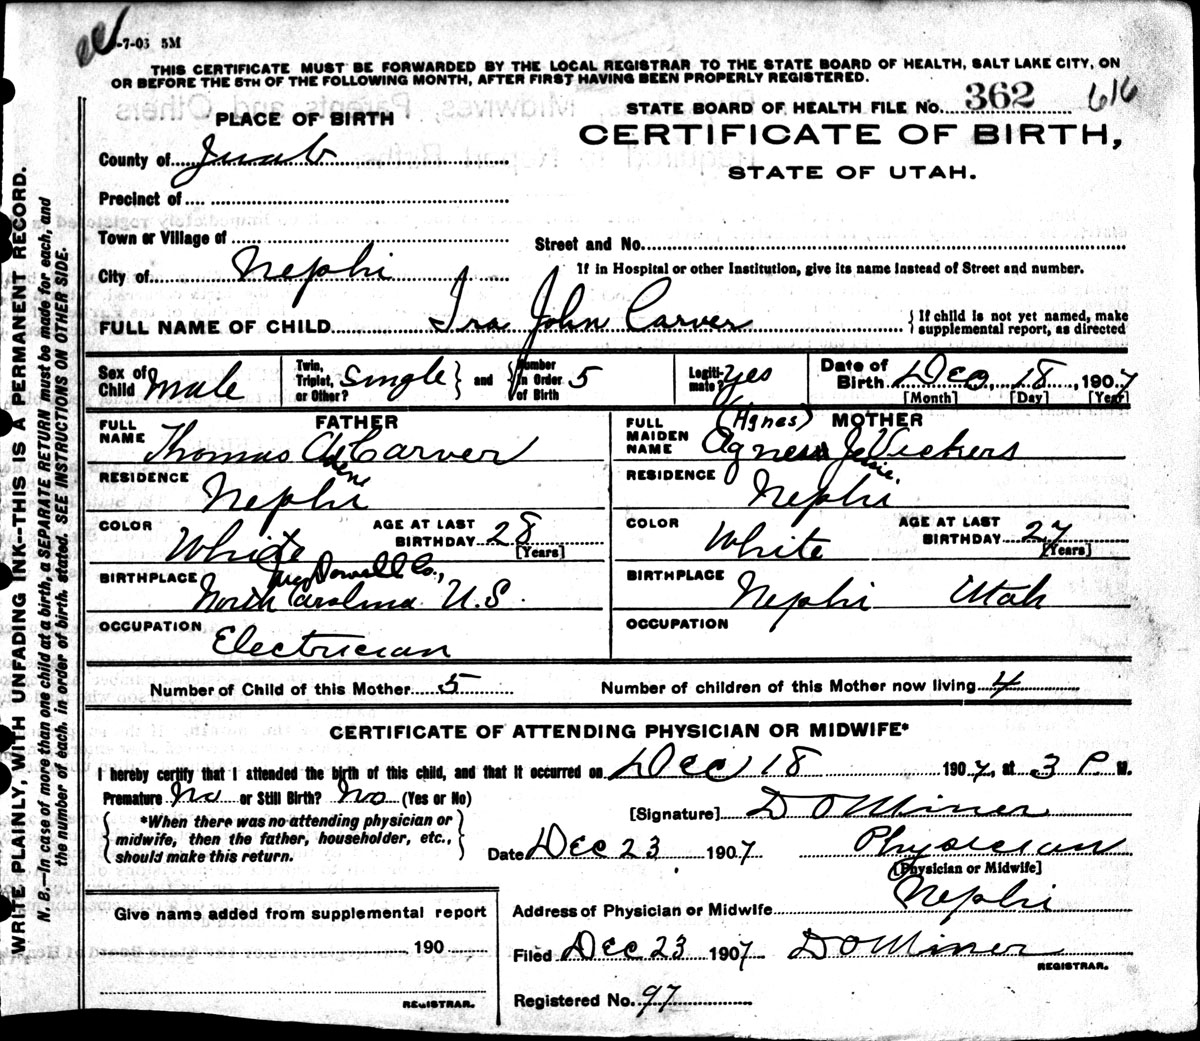 -7-03 5M
THIS CERTIFICATE MUST BE FORWARDED BY THE LOCAL REGISTRAR TO THE STATE BOARD OF HEALTH, SALT LAKE CITY, ON
OR BEFORE THE 5TH OF THE FOLLOWING MONTH, AFTER FIRST HAVING BEEN PROPERLY REGISTERED.
STATE BOARD OF HEALTH FILE No. 362 616
PLACE OF BIRTH
CERTIFICATE OF BIRTH,
STATE OF UTAH.
County of Juab
Precinct of
Town or Village of
Street and No.
City of Nephi
If in Hospital or other Institution, give its name instead of Street and number.
FULL NAME OF CHILD Ira John Carver
{If child is not yet named, make
supplemental report, as directed
Sex of Child male
Twin, Triplet, or Other? Single } and { Number in Order of Birth 5
Legitimate? yes
Date of Birth Dec, 18, 1907
[Month] [Day] [Year]
FATHER
FULL NAME Thomas A. Carver
RESIDENCE Nephi
COLOR White
AGE AT LAST BIRTHDAY 28 [Years]
BIRTHPLACE McDowell Co., North Carolina U.S.
OCCUPATION Electrician
MOTHER
FULL MAIDEN NAME (Agnes) Agness Jessie Vickers
RESIDENCE Nephi
COLOR White
AGE AT LAST BIRTHDAY 27 [Years]
BIRTHPLACE Nephi Utah
OCCUPATION
Number of Child of this Mother 5 Number of children of this Mother now living 4
CERTIFICATE OF ATTENDING PHYSICIAN OR MIDWIFE*
I hereby certify that I attended the birth of this child, and that it occurred on Dec 18 1907, at 3 P. M.
Premature No or Still Birth? No (Yes or No)
[Signature] D O Miner
{*When there was no attending physician or
midwife, then the father, householder, etc.,
should make this return.}
Date Dec 23 1907 Physician
[Physician or Midwife]
Give name added from supplemental report
190
REGISTRAR.
Address of Physician or Midwife Nephi
Filed Dec 23 1907 D O Miner
REGISTRAR.
Registered No. 97
WRITE PLAINLY, WITH UNFADING INK--THIS IS A PERMANENT RECORD.
N. B.—In case of more than one child at a birth, a SEPARATE RETURN must be made for each, and
the number of each, in order of birth, stated. SEE INSTRUCTIONS ON OTHER SIDE.